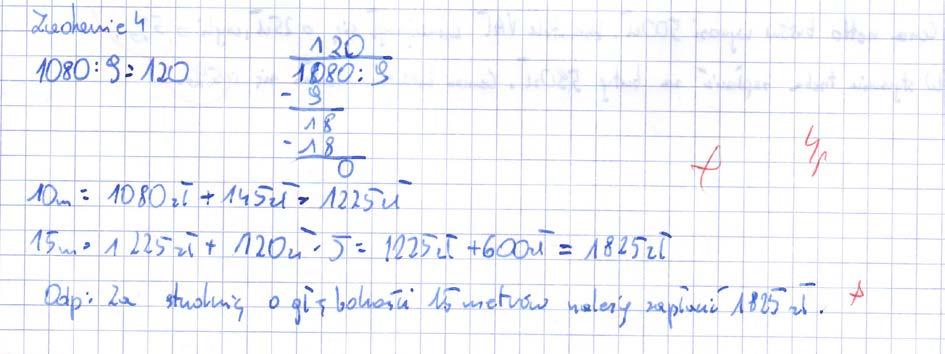 Zadanie 4
1080 : 9 = 120
120
1080 : 9
- 9
18
- 18
0
+ 4p
10m = 1080zł + 145zł = 1225zł
15m = 1225zł + 120zł · 5 = 1225zł + 600zł = 1825zł
Odp: Za studnię o głębokości 15 metrów należy zapłacić 1825 zł. +